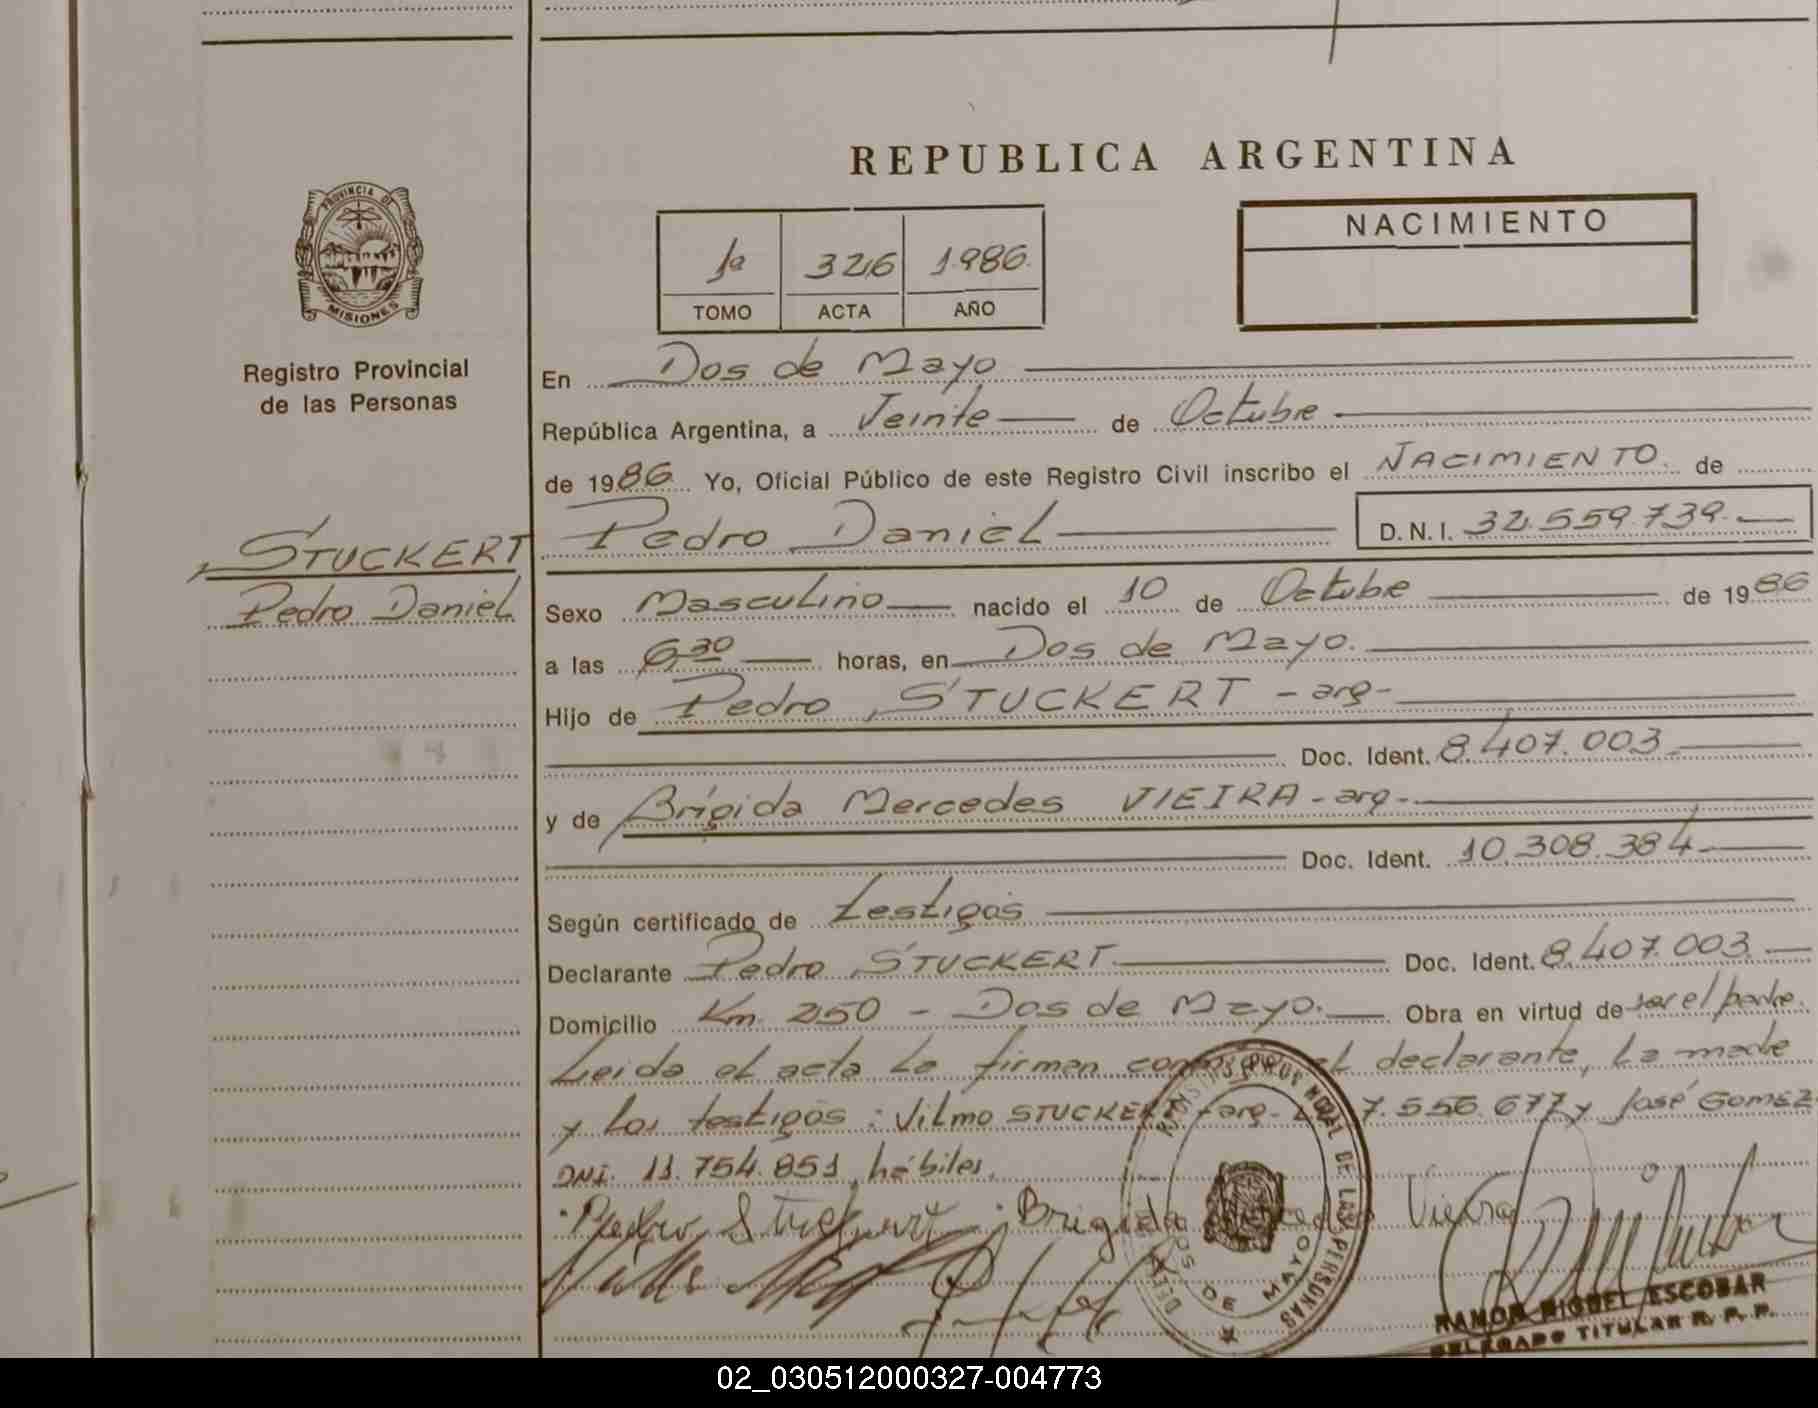 REPUBLICA ARGENTINA
PROVINCIA DE
MISIONES
Registro Provincial
de las Personas
STUCKERT
Pedro Daniel
1ª 326 1986
TOMO ACTA AÑO
NACIMIENTO
En Dos de Mayo
República Argentina, a Veinte de Octubre
de 1986 Yo, Oficial Público de este Registro Civil inscribo el NACIMIENTO de
Pedro Daniel D.N.I. 32.559.739
Sexo Masculino nacido el 10 de Octubre de 1986
a las 6 30 horas, en Dos de Mayo.
Hijo de Pedro STUCKERT - arg-
Doc. Ident. 8.407.003
y de Brígida Mercedes VIEIRA - arg-
Doc. Ident. 10.308.384
Según certificado de testigos
Declarante Pedro STUCKERT Doc. Ident. 8.407.003
Domicilio Km. 250 - Dos de Mayo. Obra en virtud de ser el padre.
Leida el acta la firman el declarante, la madre
y los testigos: Vilmo STUCKERT - arg- 7.556.677 y José GOMEZ
DNI. 11.754.851, hábiles.
Pedro Stuckert Brigida Vieira
DE LAS PERSONAS
DOS DE MAYO
RAMON MIGUEL ESCOBAR
DELEGADO TITULAR R. P. P.
02_030512000327-004773